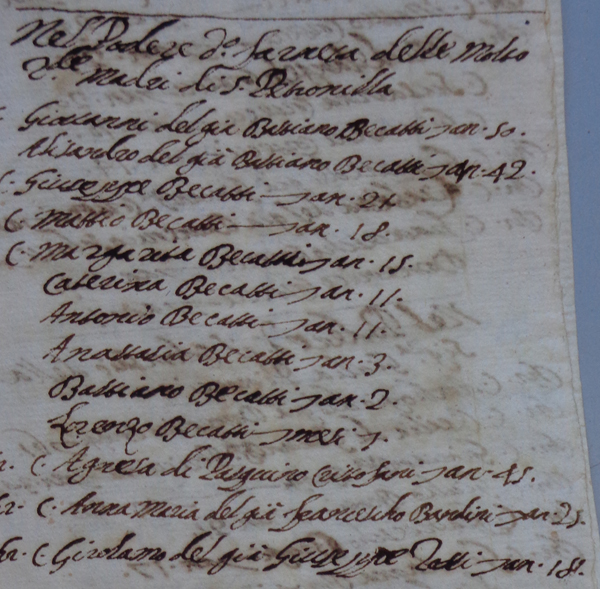 Nel Podere do. Farneta delle Molto
Rde. Madri di S. Petronilla
Giovanni del già Bastiano Becatti an. 50.
Alisandro del già Bastiano Becatti an. 42.
C. Giuseppe Becatti an. 21.
C. Matteo Becatti an. 18.
C. Margarita Becatti an. 15.
Caterina Becatti an. 11.
Antonio Becatti an. 11.
Anastasia Becatti an. 3.
Bastiano Becatti an. 2.
Lorenzo Becatti mesi
C. Agnesa di Pasquino an. 45.
C. Anna Maria del già Francescho Bandini an. 25.
C. Girolamo del già Giuseppe an. 18.